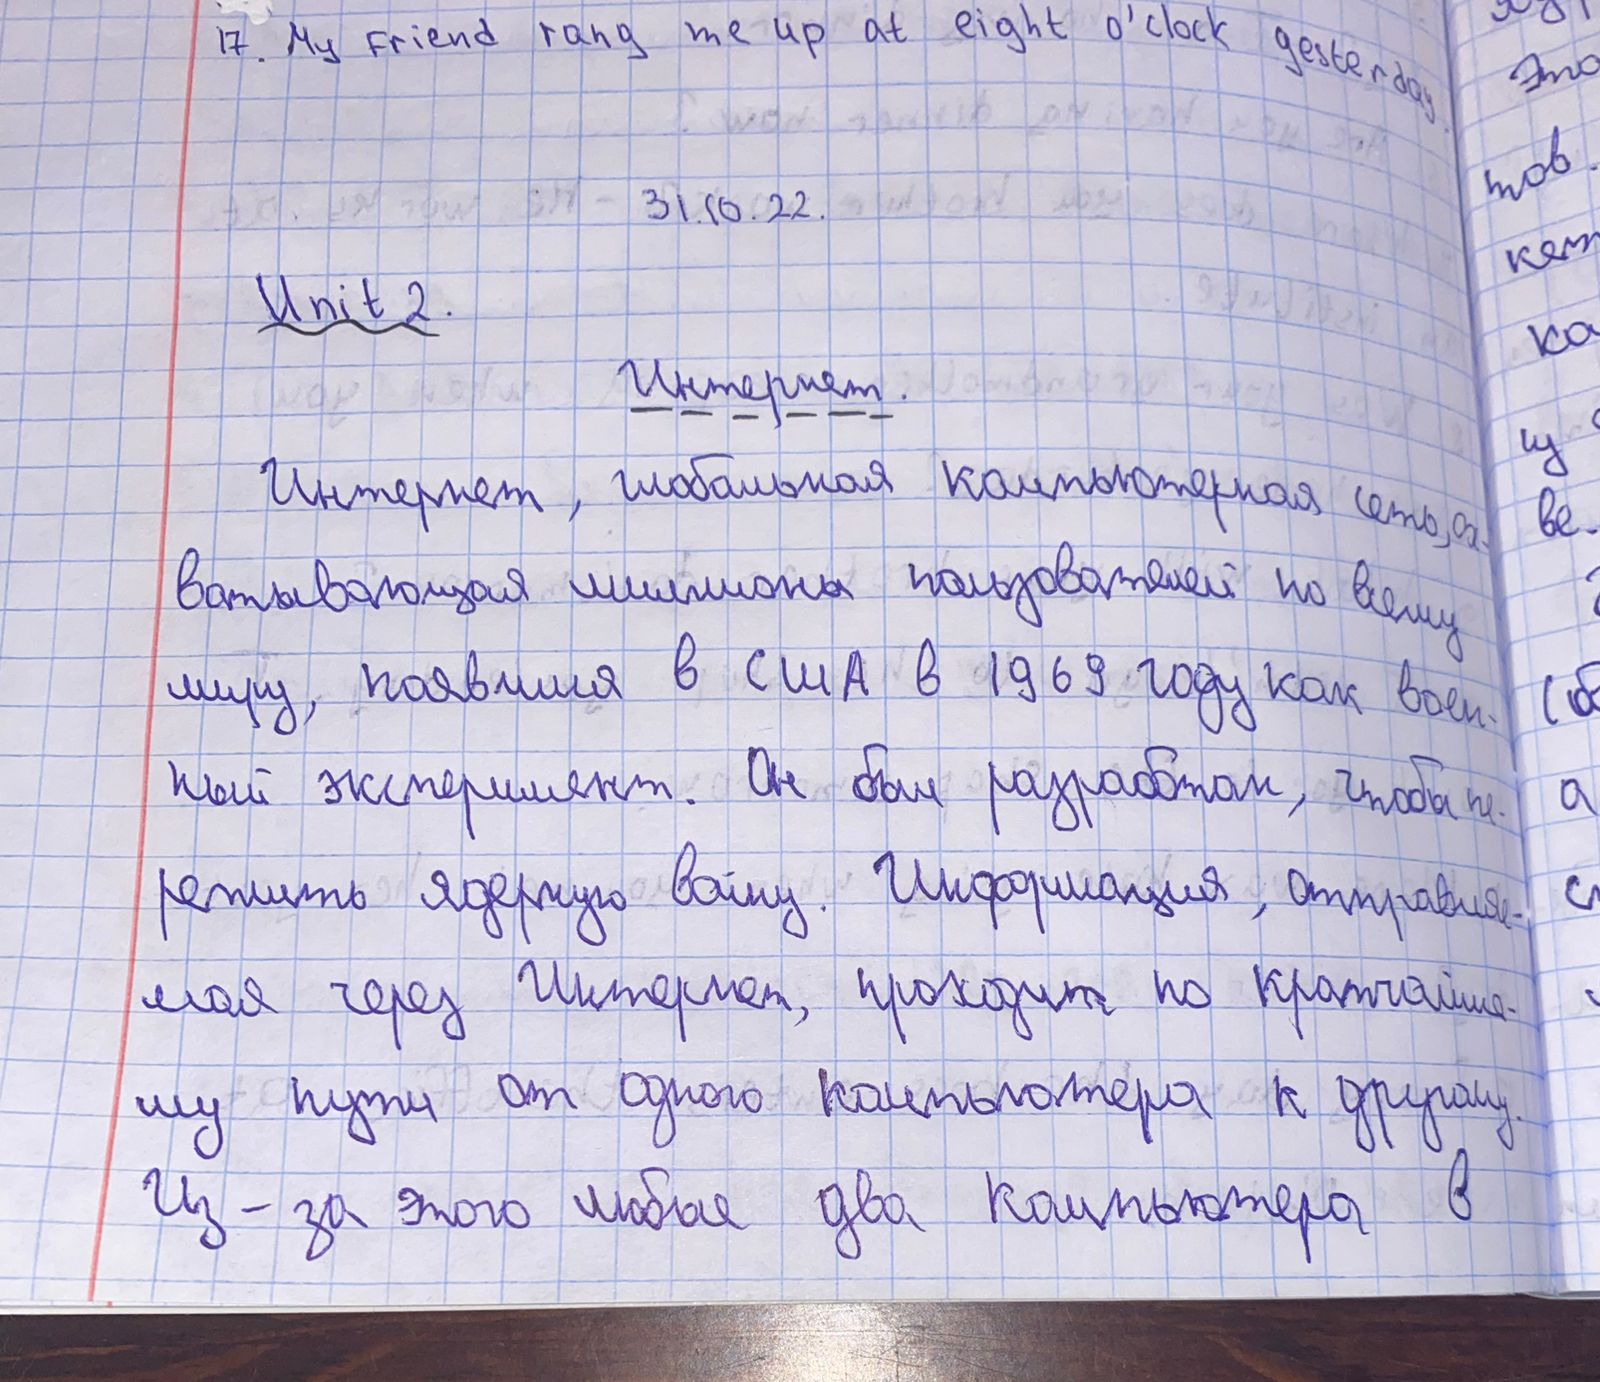 17. My friend rang me up at eight o'clock yesterday.
31.10.22.
Unit 2.
Интернет.
Интернет, глобальная компьютерная сеть, ох-
ватывающая миллионы пользователей по всему
миру, появился в США в 1969 году как воен-
ный эксперимент. Он был разработан, чтобы пе-
режить ядерную войну. Информация, отправляе-
мая через Интернет, проходит по кратчайше-
му пути от одного компьютера к другому.
Из-за этого любые два компьютера в